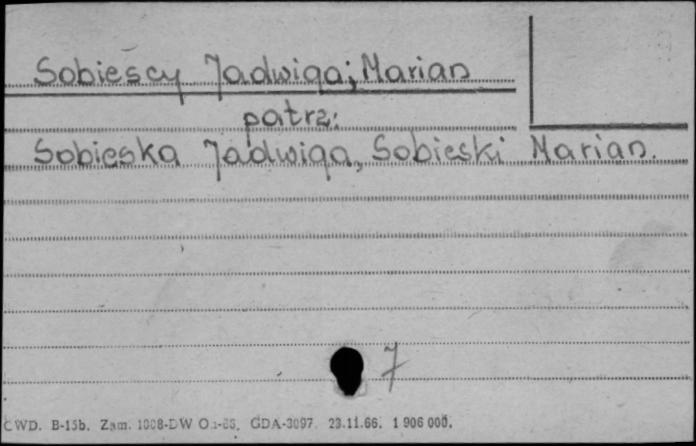 Sobiescy Jadwiga; Marian
patrz:
Sobieska Jadwiga, Sobieski Marian.
7
CWD. B-15b. Zam. GDA-3097. 23.11.66. 1 906 000.